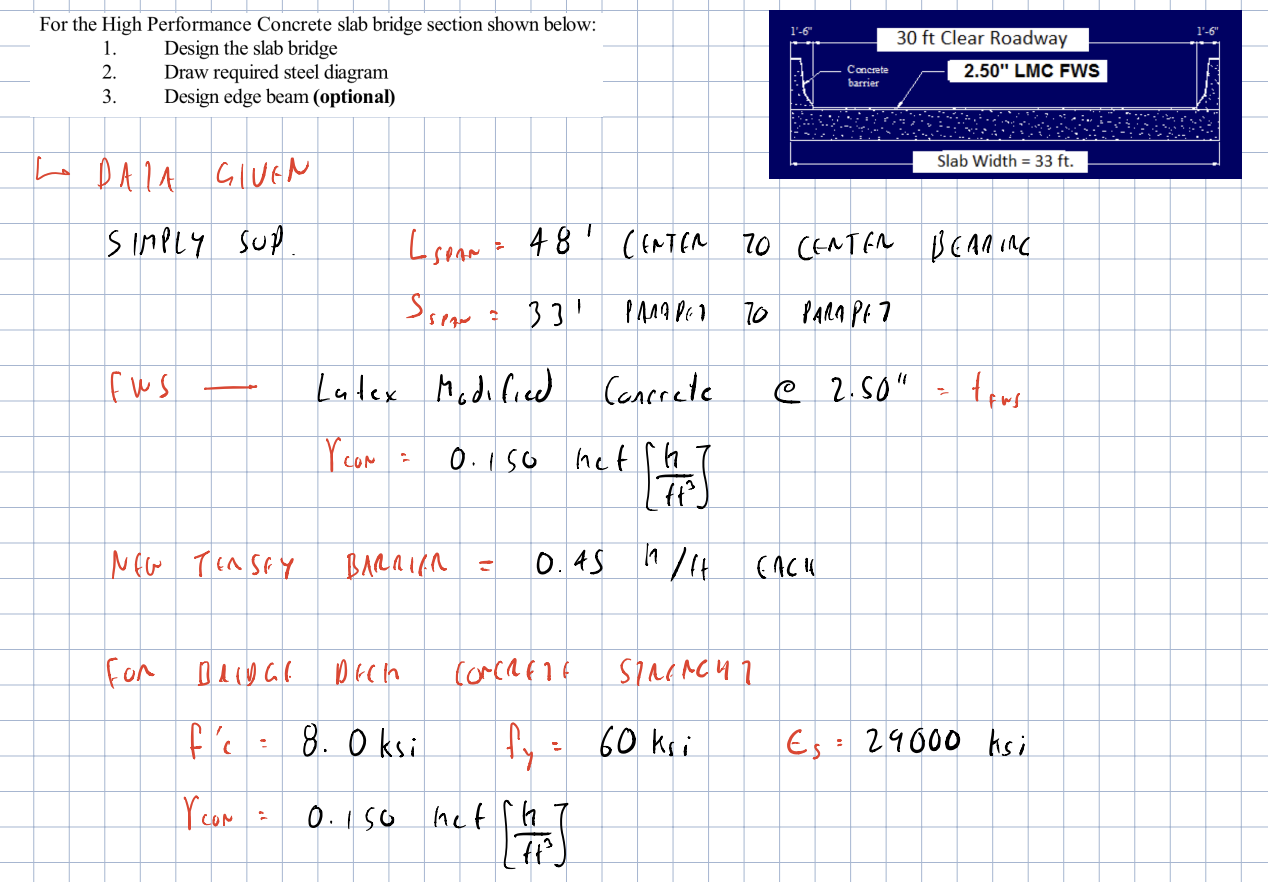 For the High Performance Concrete slab bridge section shown below:
1. Design the slab bridge
2. Draw required steel diagram
3. Design edge beam (optional)
1'-6"
30 ft Clear Roadway
1'-6"
Concrete
barrier
2.50" LMC FWS
Slab Width = 33 ft.
↳ DATA GIVEN
SIMPLY SUP. L SPAN = 48' CENTER TO CENTER BEARING
S SPAN = 33' PARAPET TO PARAPET
FWS — Latex Modified Concrete @ 2.50" = t FWS
γ CON = 0.150 kcf [k/ft³]
NEW JERSEY BARRIER = 0.45 k/ft EACH
FOR BRIDGE DECK CONCRETE STRENGHT
f'c = 8.0 ksi fy = 60 ksi Es = 29000 ksi
γ CON = 0.150 kcf [k/ft³]